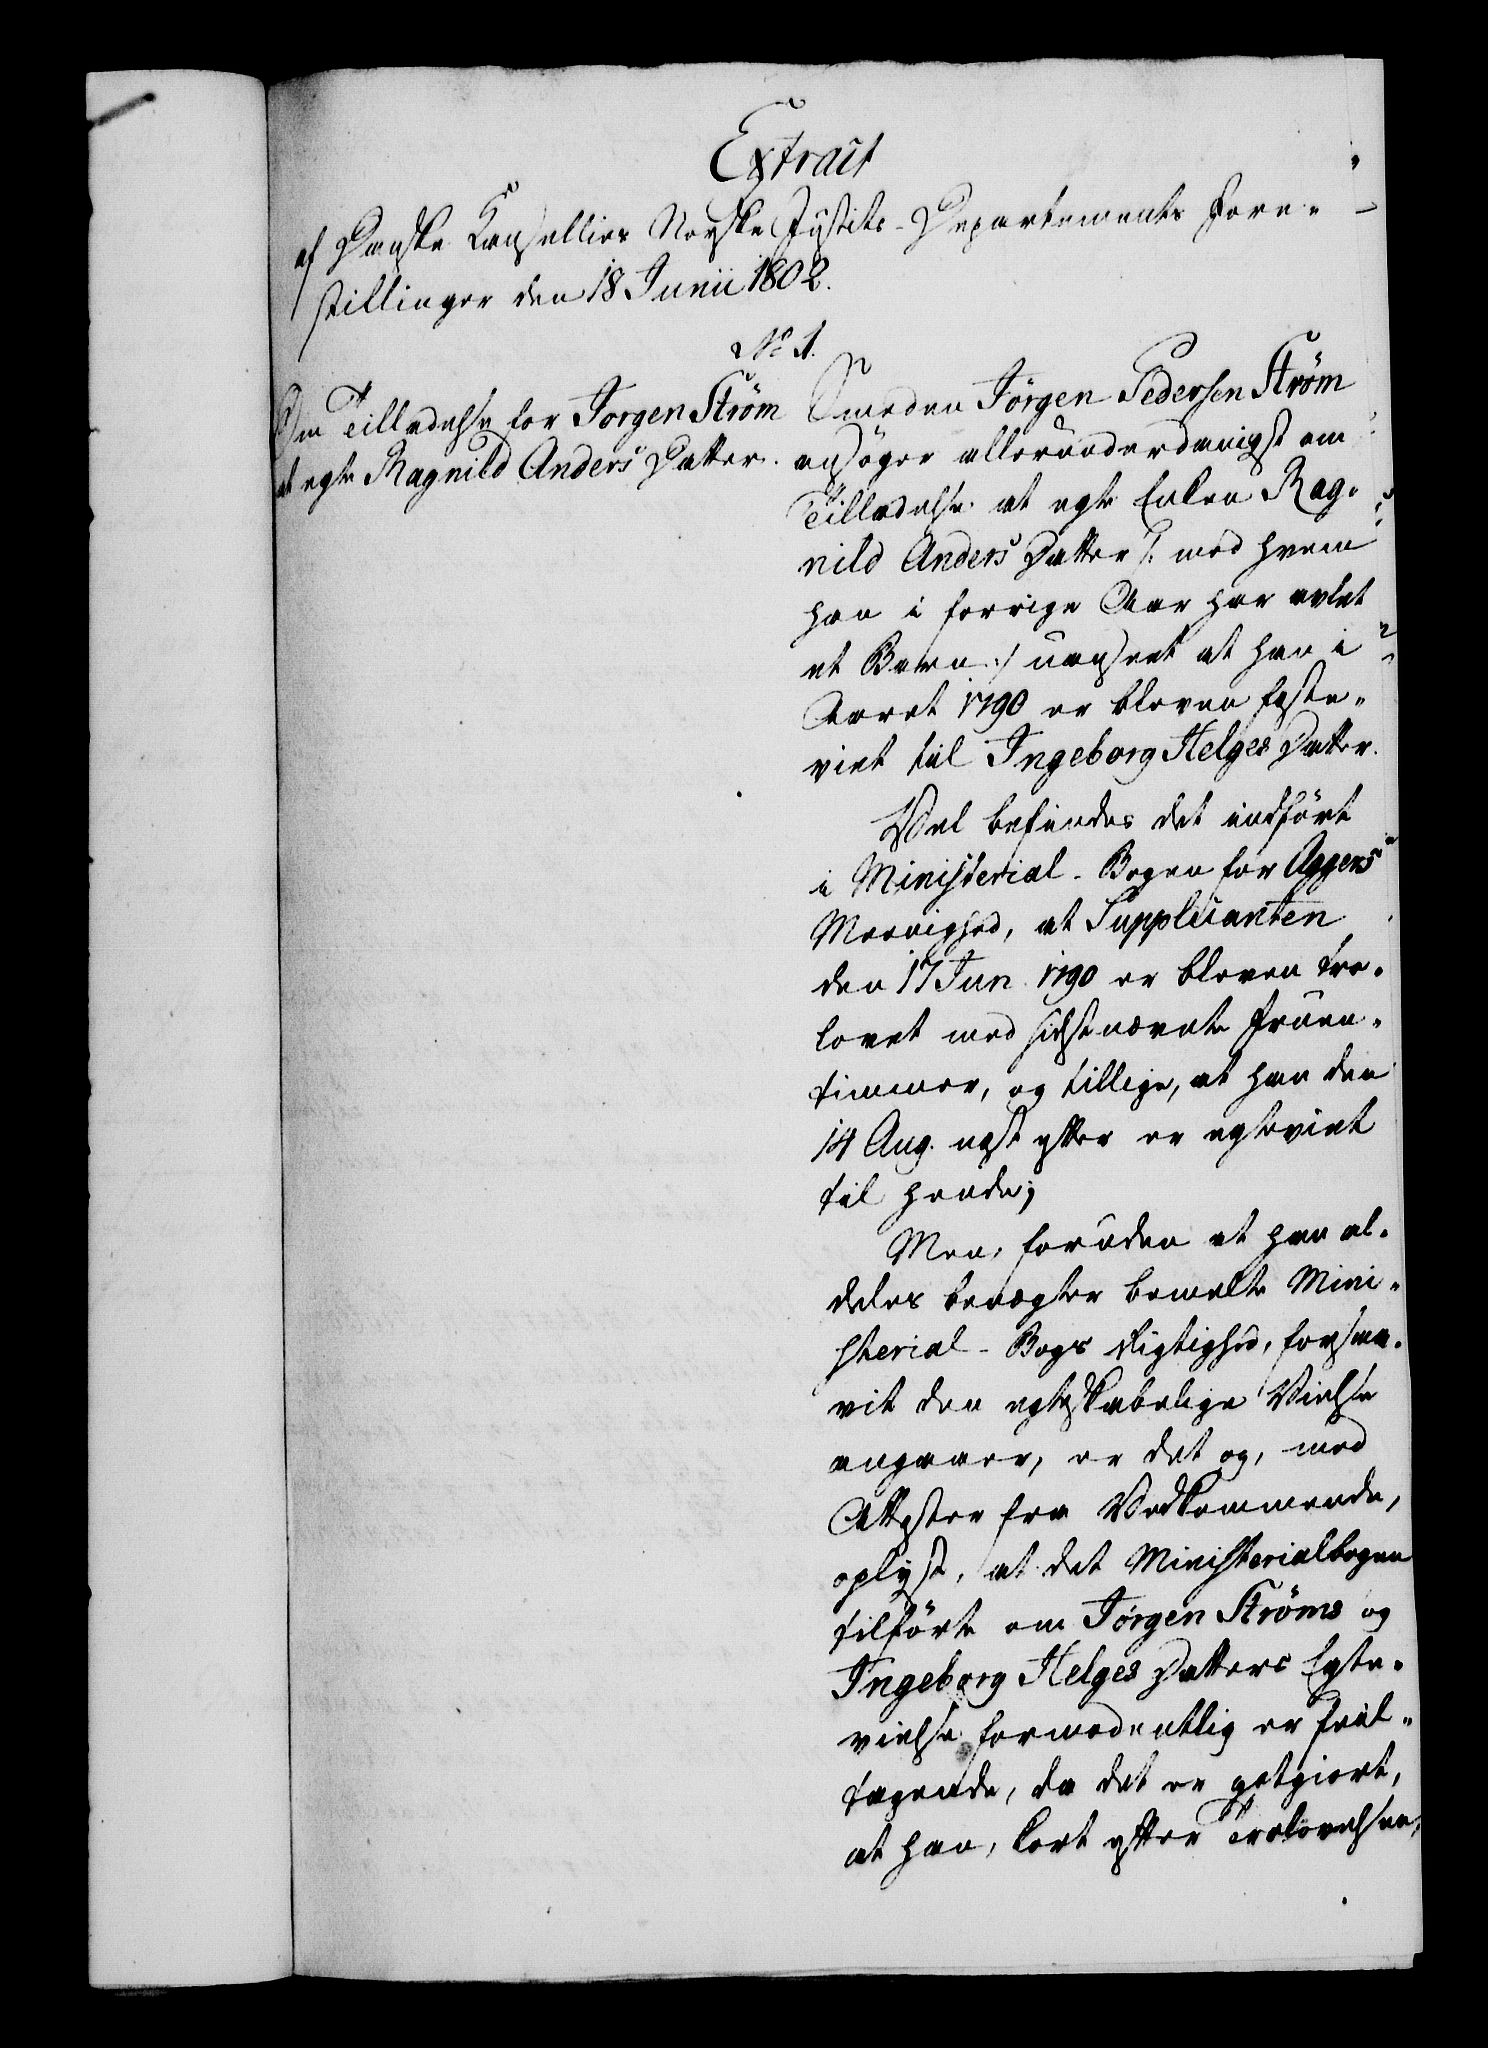 Extract
af Danske Kancelliets Norske Justits-Departements Fore-
stillinger den 18 Junii 1802.
No 1.
Om Tilladelse for Jorgen Ström
at egte Ragnild Anders Datter.
Smeden Jörgen Pedersen Ström
ansöger allerunderdanigst om
Tilladelse at egte Enken Rag-
nild Anders Datter /: med hvem
han i forrige Aar har avlet
et Barn :/ uanseet at han i
Aaret 1790 er bleven feste-
viet til Ingeborg Helges Datter.
Vel befindes det indfört
i Ministerial-Bogen for Aggers
Menighed, at Supplicanten
den 17 Jun. 1790 er bleven tro-
lovet med sidstnævnte Fruen-
timmer, og tillige, at han den
14 Aug. nest efter er egteviet
til hende;
Men, foruden at han al-
deles benægter bemelte Mini-
sterial-Bogs Rigtighed, forsaa-
vit den egteskabelige Vielse
angaaer, er det og, med
Attester fra Vedkommende,
oplyst, at det Ministerialbogen
tilförte om Jörgen Ströms og
Ingeborg Helges Datters Egte-
vielse formodentlig er feil-
tagende, da det er godgiort,
at han, kort efter Trolovelsen,